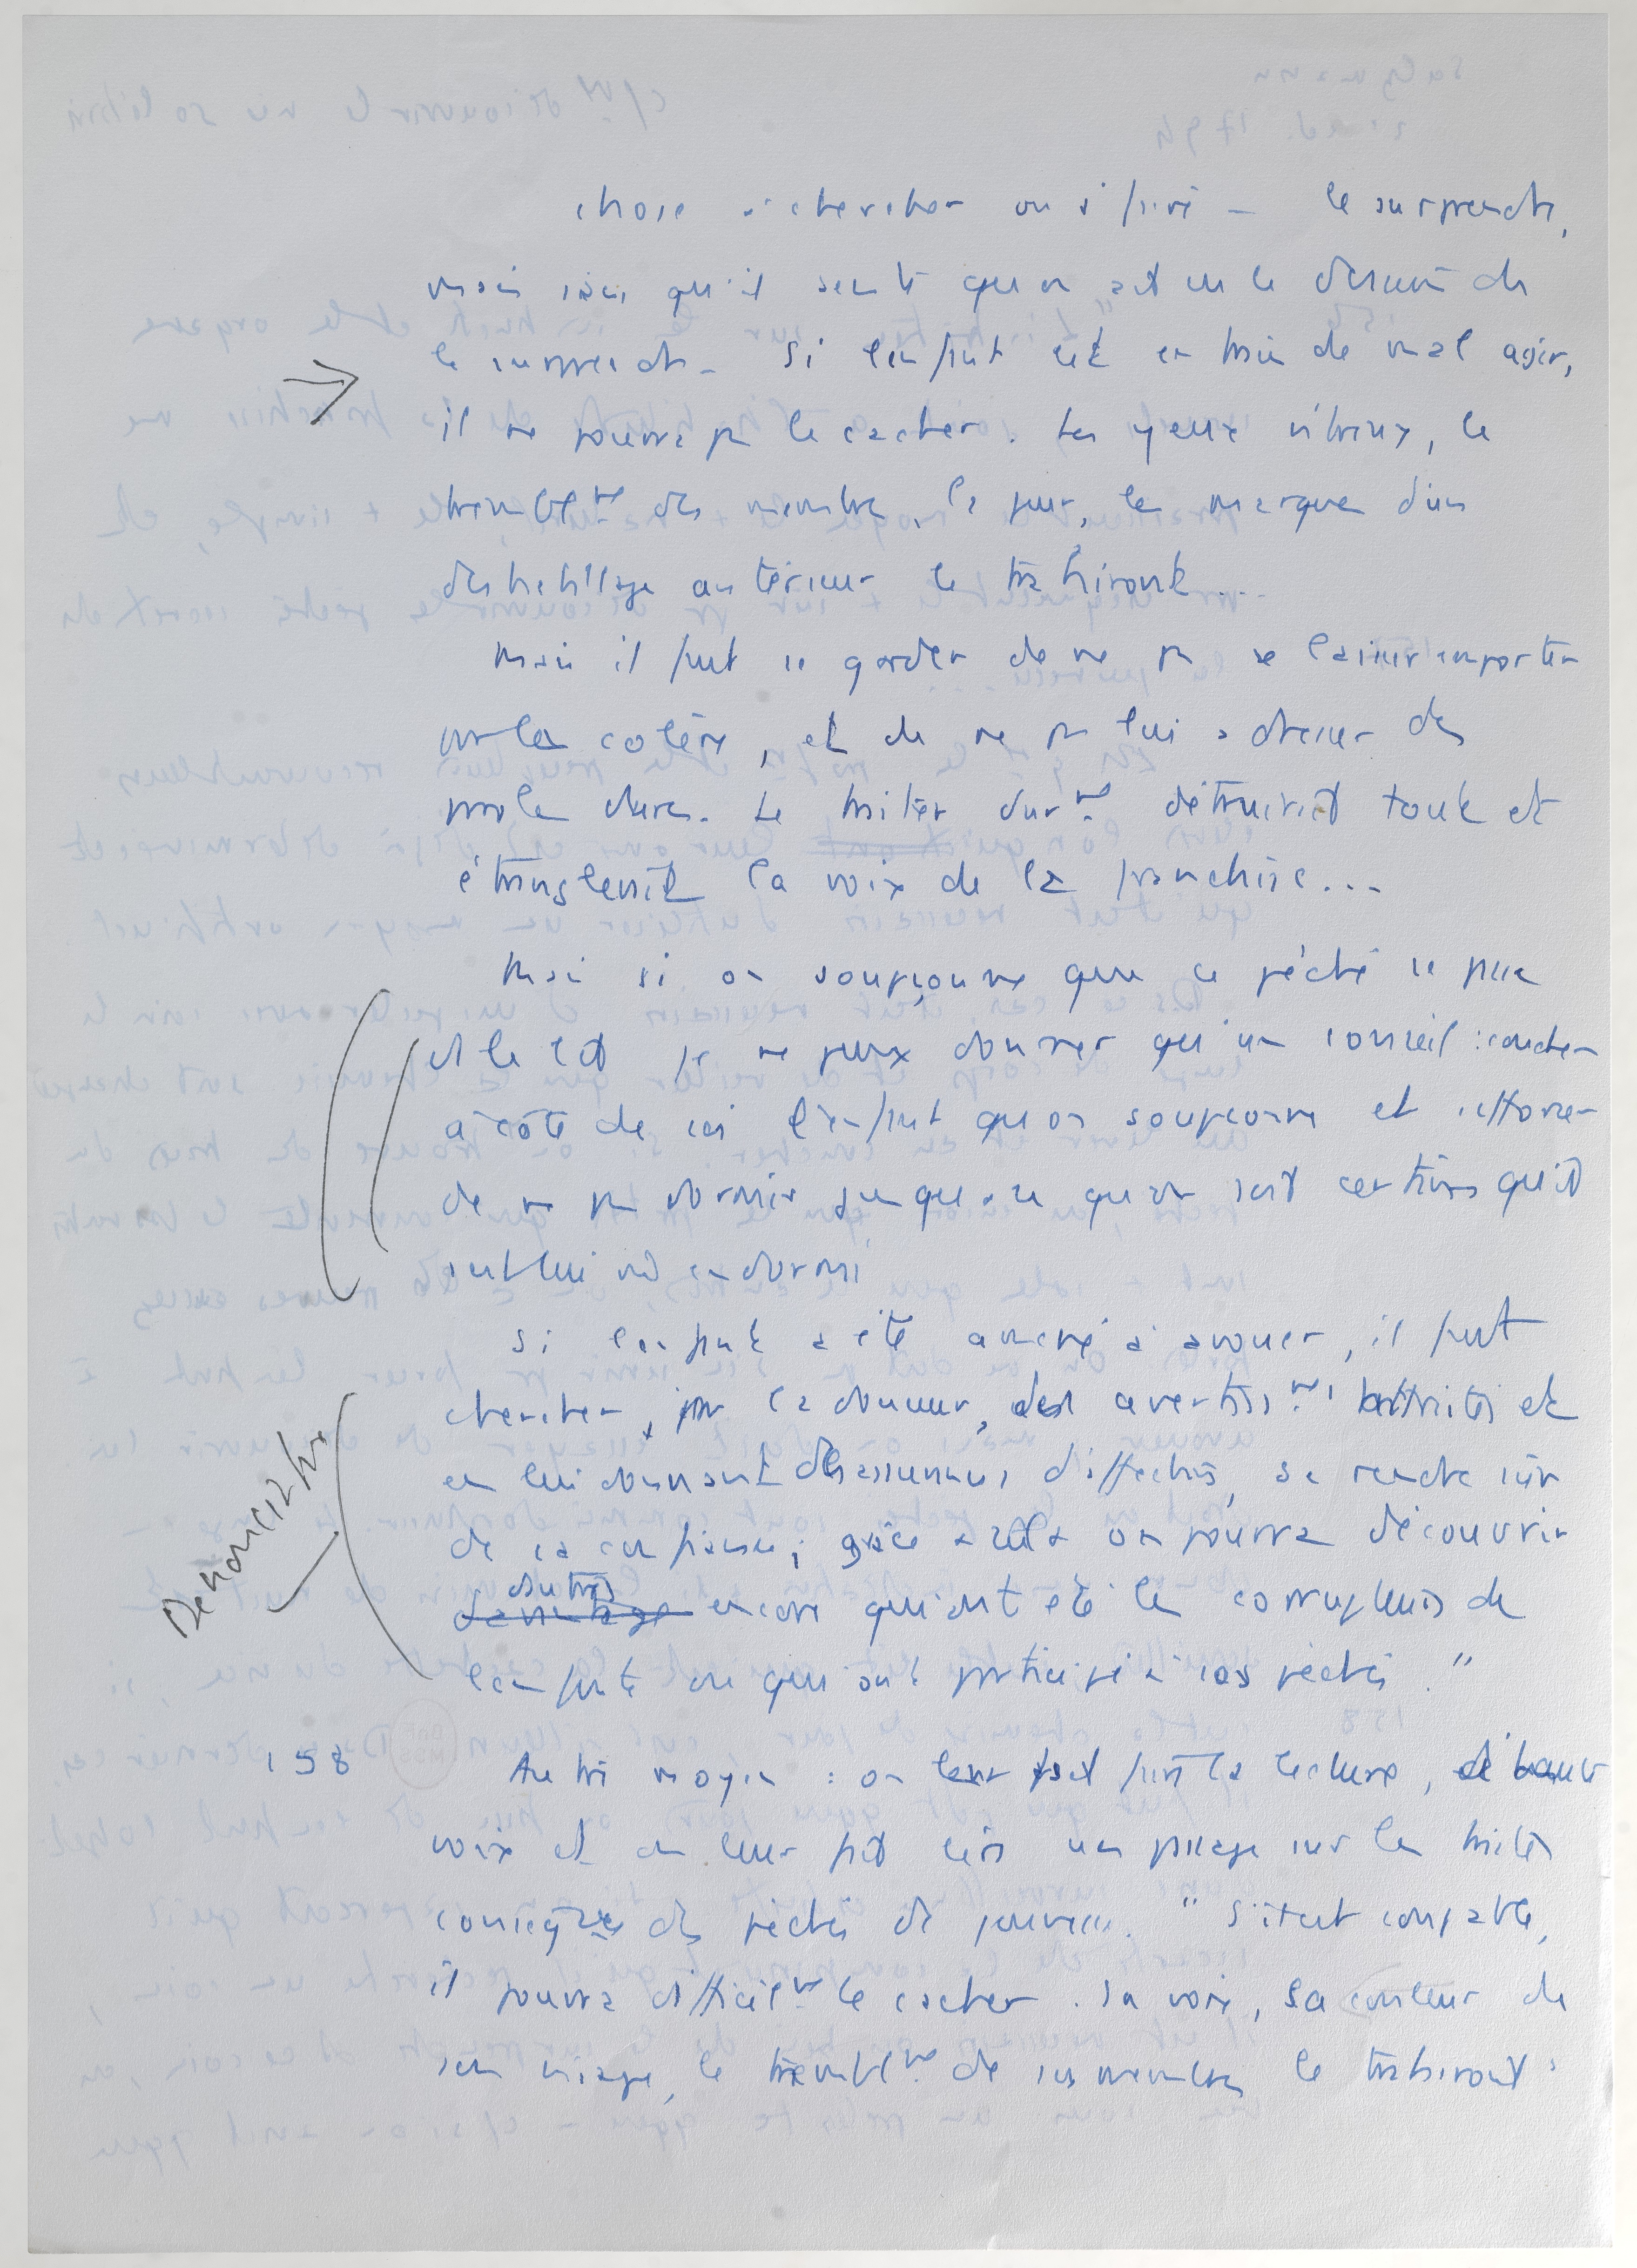 chose à chercher ou à faire – le surprendre,
mais sans qu'il sente qu'on a eu le dessein de
le surprendre. Si l'enfant est en train de mal agir,
il ne pourra pas le cacher. Les yeux vitreux, le
tremblmt des membres, la peur, les marques d'un
déshabillage antérieur le trahiront...
Mais il faut se garder de ne pas se laisser emporter
par la colère, et de ne pas lui adresser des
paroles dures. Le traiter durmt détruirait tout et
étranglerait la voix de la franchise...
Mais si on soupçonne que ce péché se passe
au lit je ne peux donner qu'un conseil : coucher
à côté de soi l'enfant qu'on soupçonne et s'efforcer
de ne pas dormir jusqu'à ce qu'on soit certain qu'il
soit lui endormi
Si l'enfant a été amené à avouer, il faut
chercher, par la douceur, des avertissmts et
en lui donnant des assurances d'affection, se rendre sûr
de sa confiance ; grâce à cela on pourra découvrir
Dénonciation
davantage autres encore qui ont été les corrupteurs de
l'enfant ou qui ont participé à ses péchés."
158 Autre moyen : on leur fait faire la lecture, à haute
voix et on leur fait lire un passage sur les tristes
conséqces des péchés de jeunesse. "S'il est coupable,
il pourra difficilmt le cacher. Sa voix, la couleur de
son visage, le tremblmt de ses membres le trahiront"